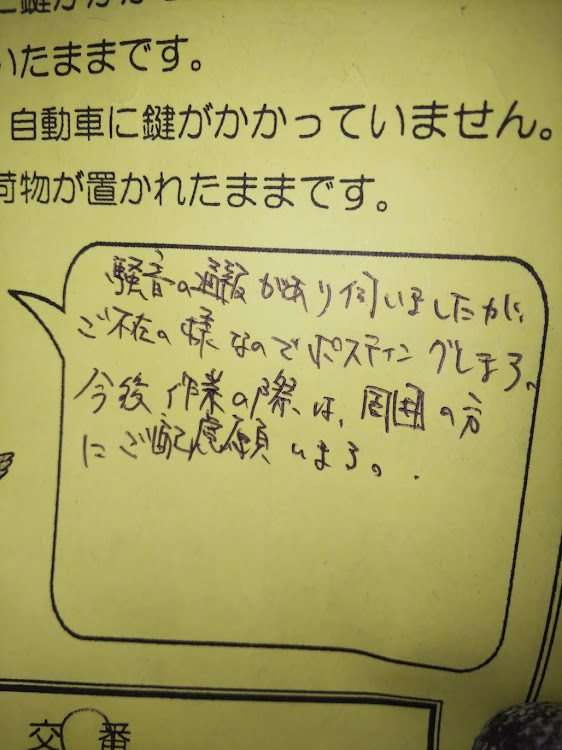 に鍵がかか
いたままです。
自動車に鍵がかかっていません。
荷物が置かれたままです。
騒音の通報があり伺いましたが、
ご不在の様なのでポスティングします。
今後作業の際は、周囲の方
にご配慮願います。
交番